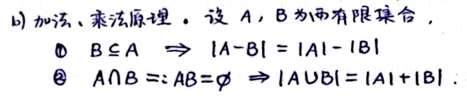 b) 加法、乘法原理。设 A, B 为两有限集合,
① B ⊆ A ⇒ |A-B| = |A| - |B|
② A∩B =: AB = ∅ ⇒ |A∪B| = |A|+|B|.